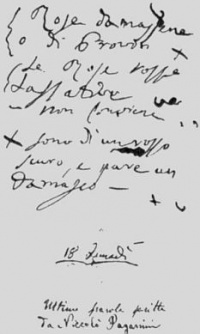 Rose damascene
o di Provon
Le Rose rosse
Lassative
non
sono di un rosso
scuro, e pare un
Damasco –
18 Lunedì
Ultime parole scritte
da Nicolò Paganini